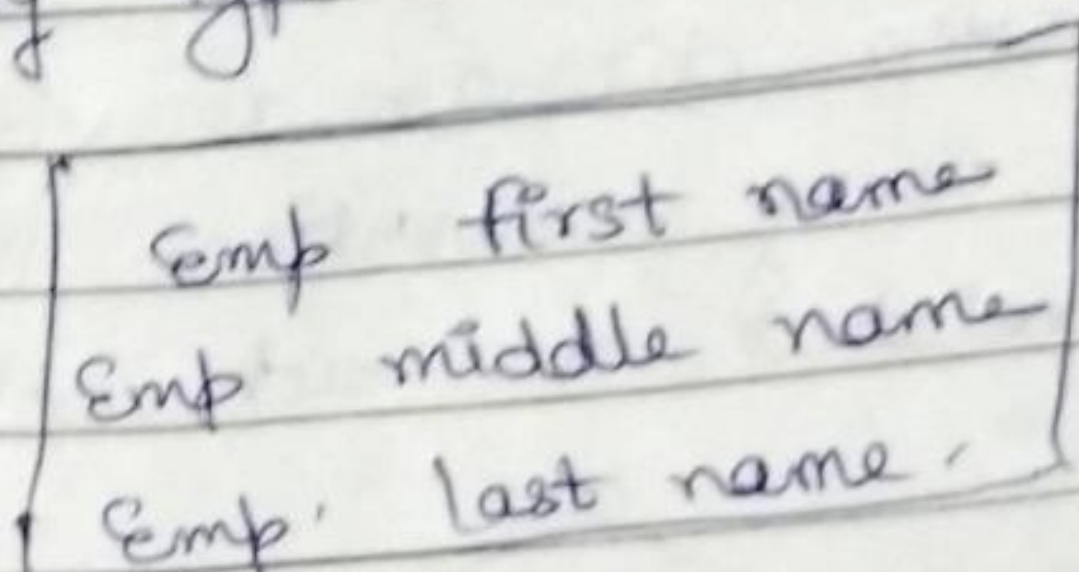 Emp first name
Emp middle name
Emp. last name.